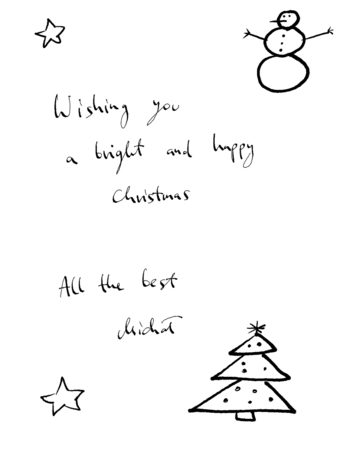 Wishing you
a bright and happy
Christmas
All the best